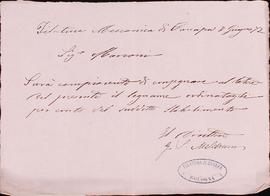 Filatura Meccanica di Canapa 8 Giugno 72
Sig. Marconi
Sarà compiacente di consegnare al latore
del presente il legname ordinatogli
per conto del suddetto Stabilimento
Il Direttore
FILATURA DI CANAPA
BOLOGNA